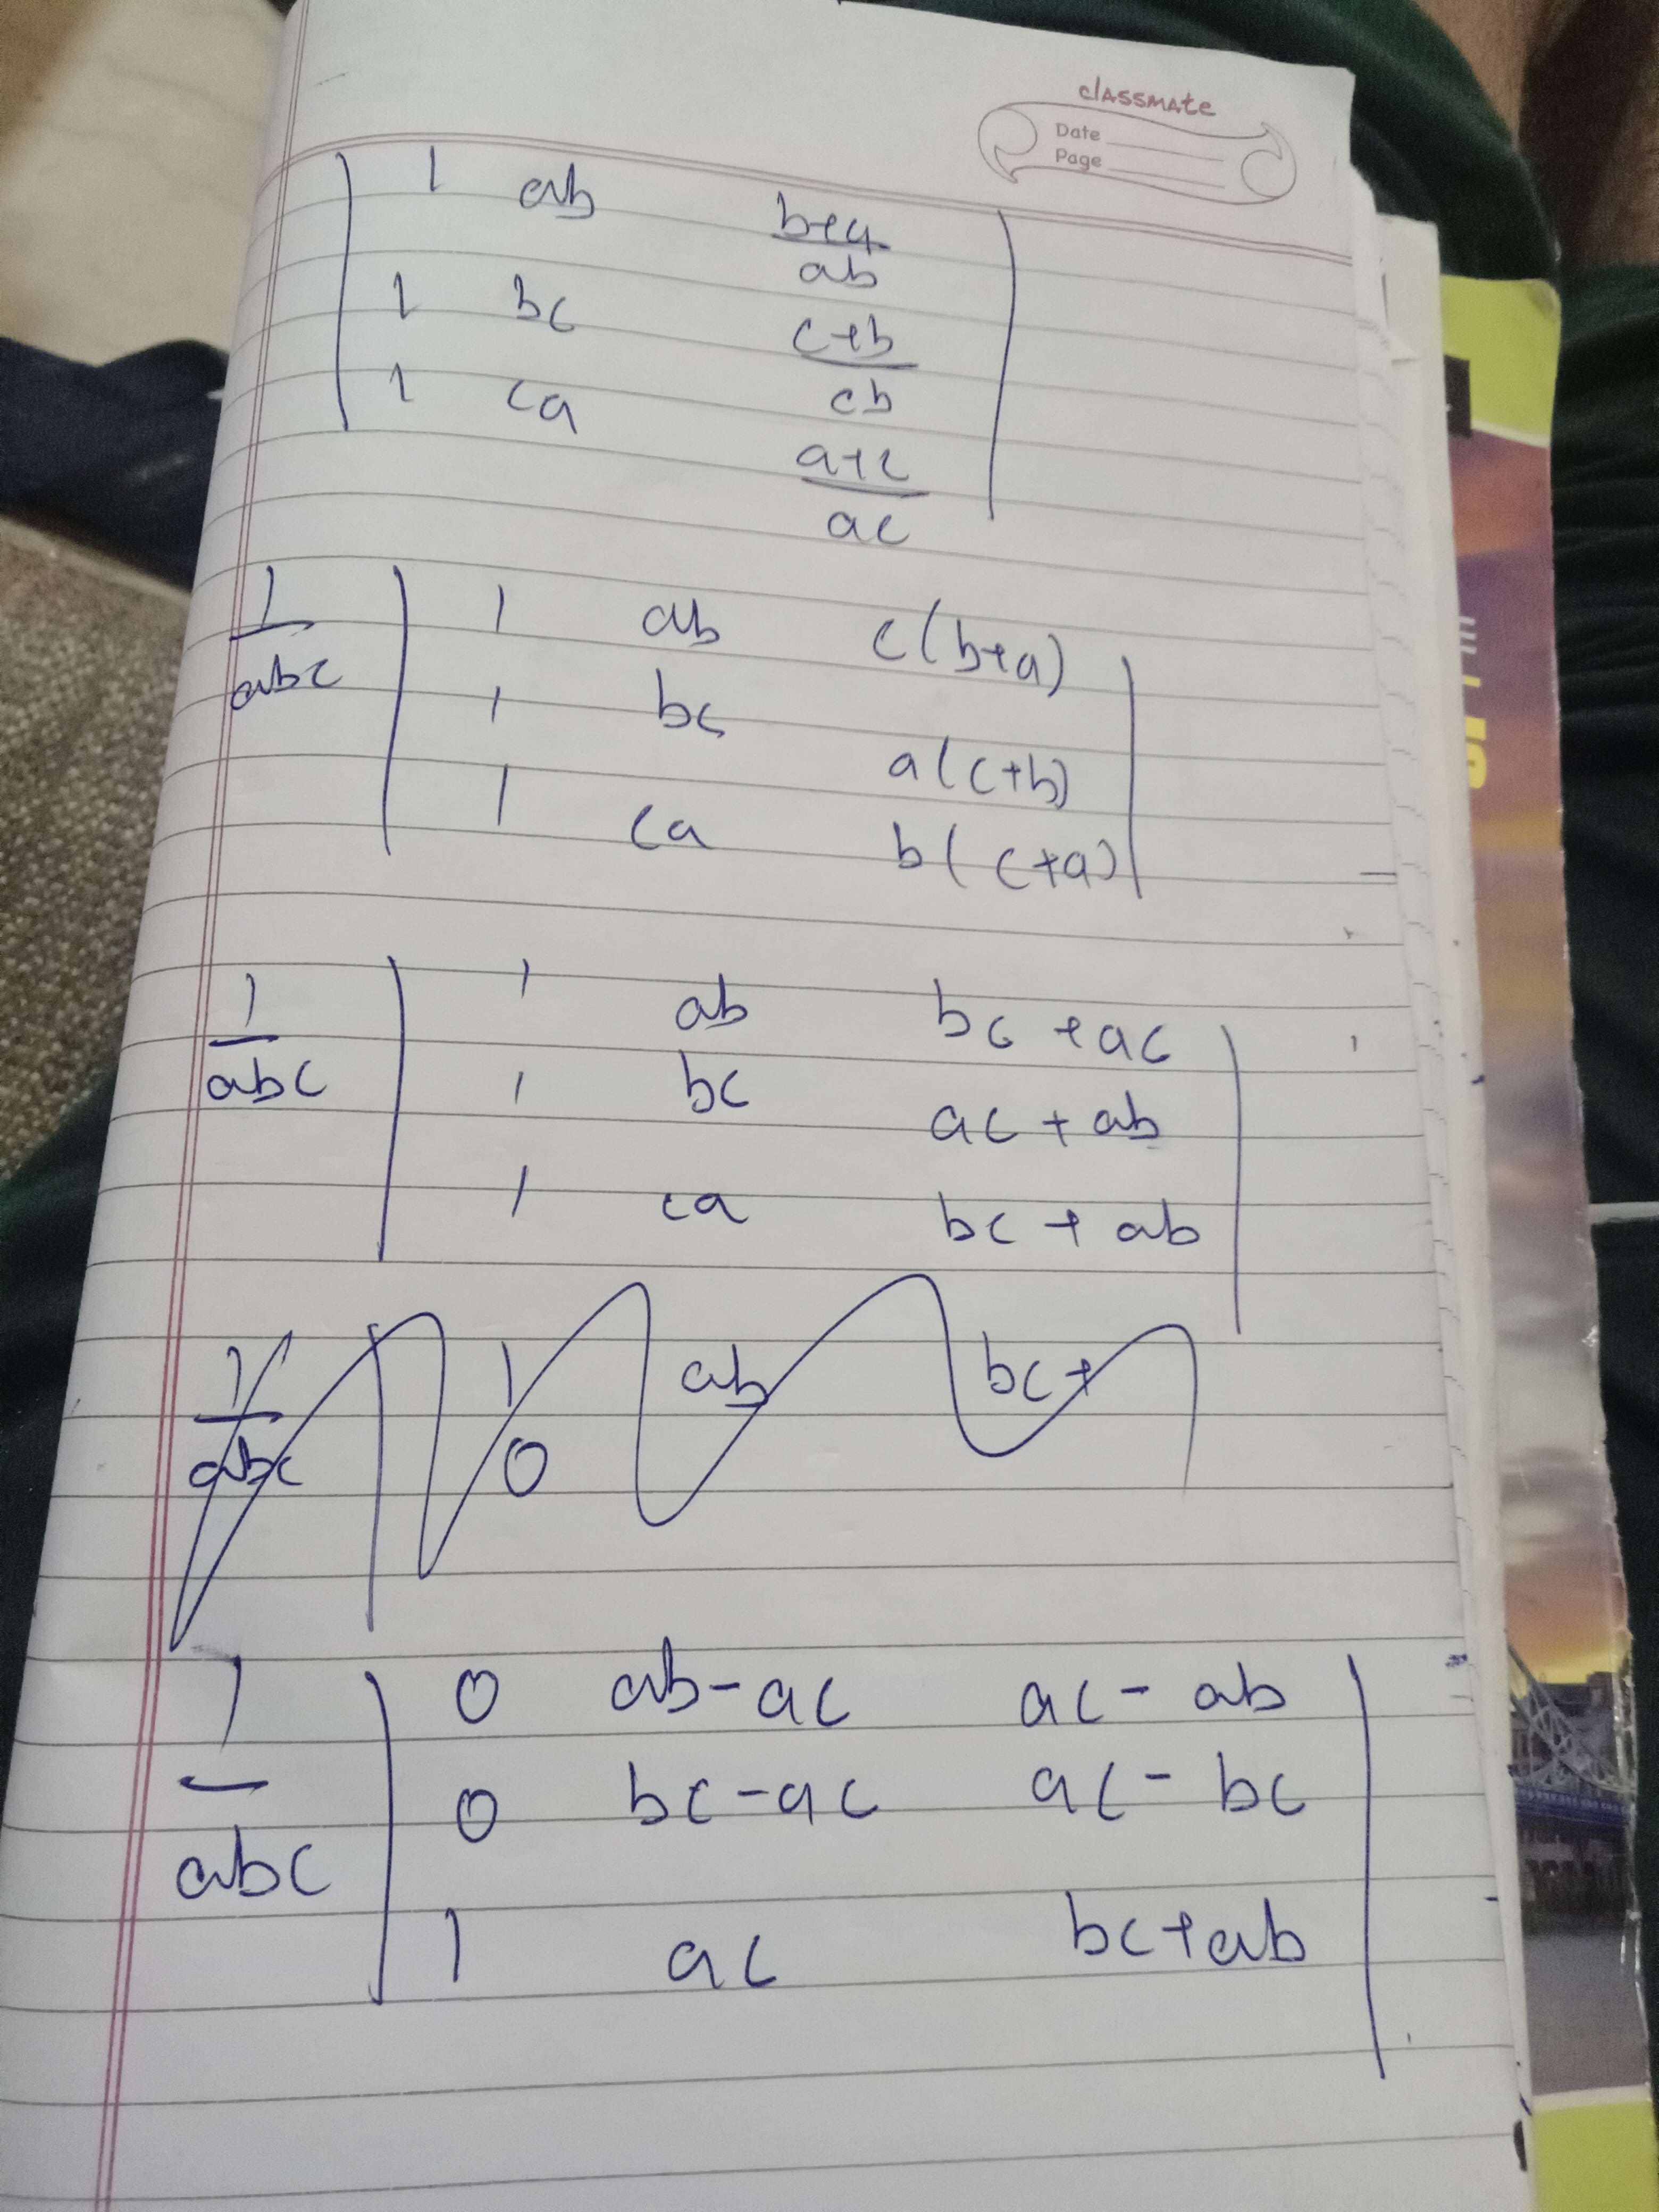 classmate
Date
Page
1 ab b+a
ab
1 bc c+b
cb
1 ca a+c
ac
1 1 ab c(b+a)
abc 1 bc a(c+b)
1 ca b(c+a)
1 1 ab bc+ac
abc 1 bc ac+ab
1 ca bc+ab
1 1 ab bc+
abc 0
1 0 ab-ac ac-ab
0 bc-ac ac-bc
abc
1 ac bc+ab